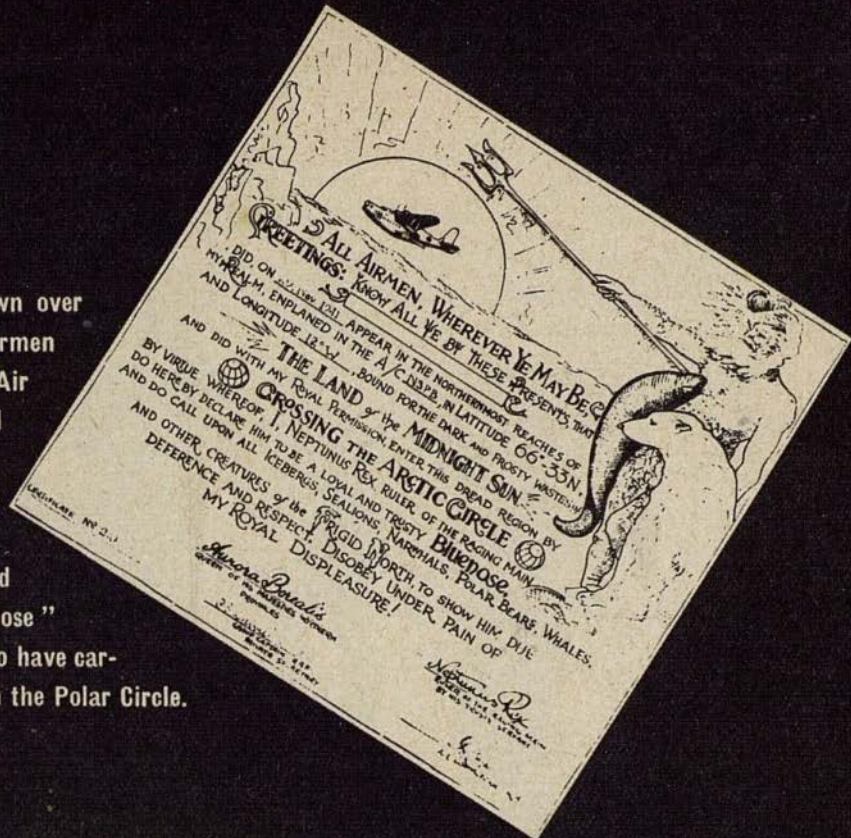 wn over
rmen
Air
d
ose "
o have car-
n the Polar Circle.
TO ALL AIRMEN, WHEREVER YE MAY BE,
GREETINGS: KNOW ALL YE BY THESE PRESENTS, THAT
DID ON NOV 1941 APPEAR IN THE NORTHERNMOST REACHES OF
MY REALM, ENPLANED IN THE A/C IN LATITUDE 66°-33N.
AND LONGITUDE 12°W, BOUND FOR THE DARK AND FROSTY WASTES IN
THE LAND of the MIDNIGHT SUN
AND DID WITH MY ROYAL PERMISSION, ENTER THIS DREAD REGION BY
CROSSING THE ARCTIC CIRCLE
BY VIRTUE WHEREOF, I, NEPTUNUS REX, RULER OF THE RAGING MAIN,
DO HEREBY DECLARE HIM TO BE A LOYAL AND TRUSTY BLUENOSE,
AND DO CALL UPON ALL ICEBERGS, SEALIONS, NARWHALS, POLAR BEARS, WHALES,
AND OTHER CREATURES of the FRIGID NORTH TO SHOW HIM DUE
DEFERENCE AND RESPECT, DISOBEY UNDER PAIN OF
MY ROYAL DISPLEASURE!
Aurora Borealis
QUEEN OF HIS MAJESTIES NORTHERN
PROVINCES
Neptunus Rex
RULER OF THE RAGING MAIN
BY HIS TRUSTY SERVANT
GROUP CAPTAIN R.A.F.
CERTIFICATE Nº